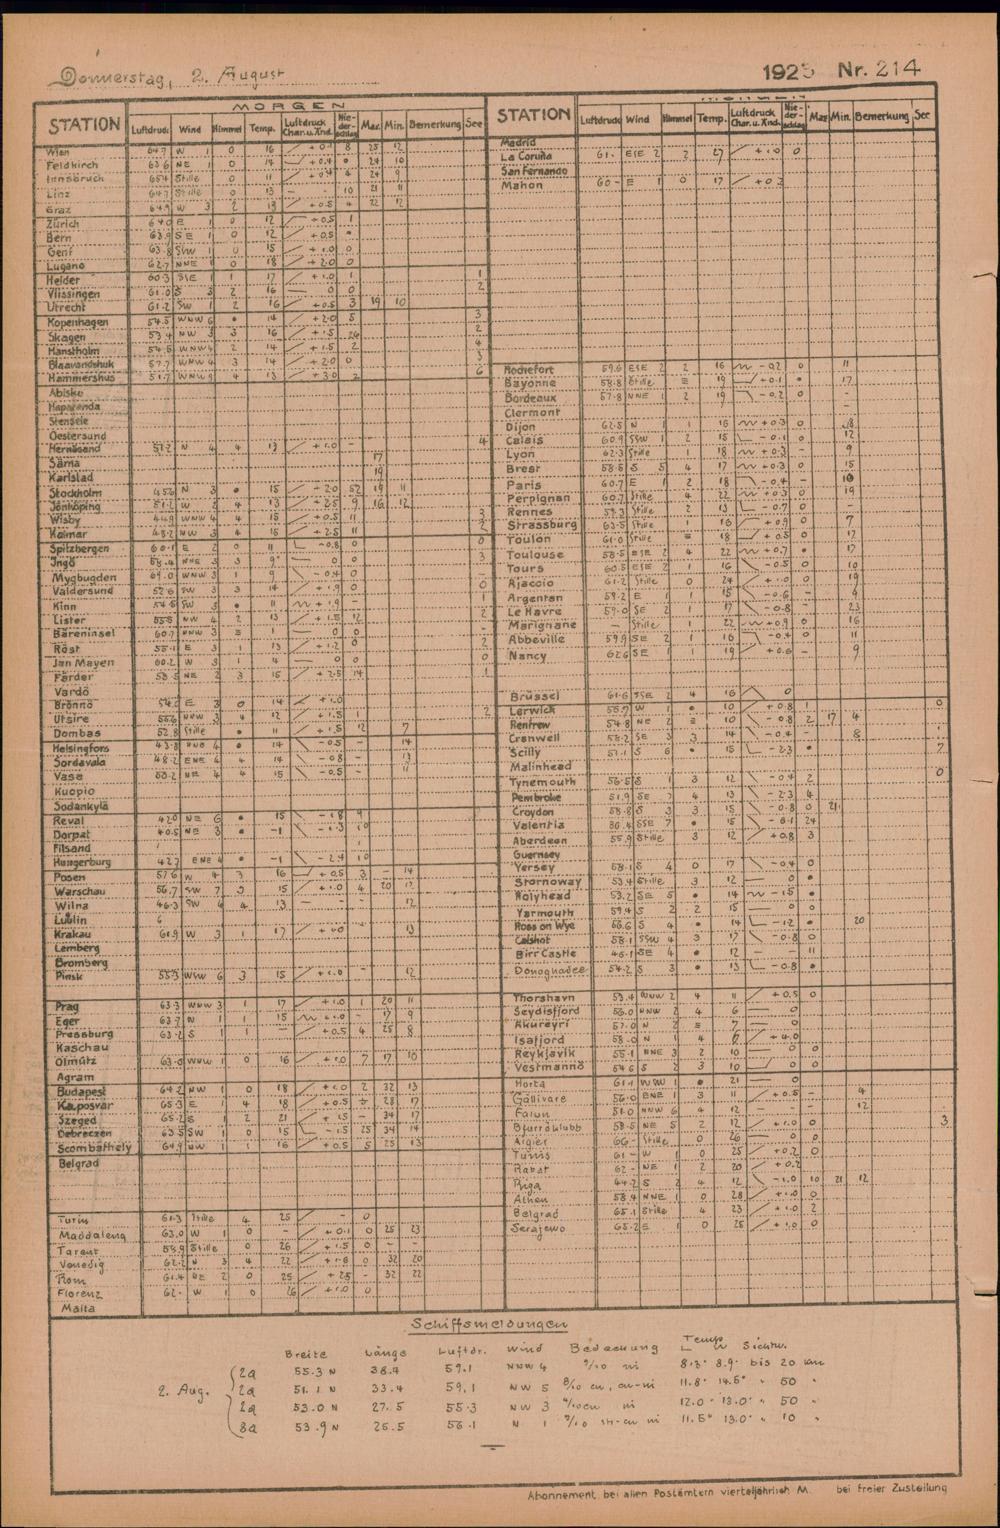 Donnerstag, 2. August
1923 Nr. 214
MORGEN
STATION Luftdruck Wind Himmel Temp. Luftdruck Char. u. Änd. Nie-der-schlag Max. Min. Bemerkung See
Wien 64.7 W 1 0 16 8 25 12
Feldkirch 63.6 NE 1 0 14 +0.4 24 10
Innsbruck Stille 0 11 24 9
Linz Stille 0 13 - - 10 21 11
Graz 64.9 W 3 2 13 +0.5 22 12
Zürich 64.0 E 1 0 12 +0.5 1
Bern 63.9 SE 1 0 12 +0.5
Genf 63.8 SW 1 0 15 +1.0 0
Lugano 62.7 NNE 1 0 18 +2.0 0
Helder 60.3 SSE 1 1 17 +1.0 1 1
Vlissingen 61.0 S 3 2 16 0 0 2
Utrecht 61.2 SW 1 2 16 +0.5 3 19 10
Kopenhagen 54.5 WNW 6 14 +2.0 5 3
Skagen 53.4 NW 3 3 16 2
Hanstholm 54.5 WNW 2 14 +1.5 2 4
Blaavandshuk 57.7 WNW 4 3 14 +2.0 0 3
Hammershus 51.7 WNW 9 4 13 +3.0 2 6
Abisko
Haparanda
Stensele
Oestersund
Hernösand 51.2 N 4 4 13 +1.0 - 4
Särna 17
Karlstad 19
Stockholm 45.6 N 3 15 52 19 11
Jönköping W 2 4 13 9 16 12
Wisby 44.9 WNW 4 4 15 +0.5 11 3
Kalmar 48.2 NW 3 4 15 +2.5 11 2
Spitzbergen 60.1 E 2 0 11 -0.8 0 0
Ingö 58.4 NNE 3 3 9 0 0 3
Mygbugden 69.0 WNW 3 1 9 -0.4 0 -
Valdersund 52.6 SW 3 3 14 0 0
Kinn 54.5 SW 3 11 1
Lister NW 4 2 13 +1.5 12 2
Bäreninsel 60.7 NNW 3 1 0 0 -
Röst E 3 1 13 +1.2 0 2
Jan Mayen 60.2 W 3 1 4 0 0 0
Färder 53.5 NE 2 3 15 +2.5 14 1
Vardö
Brönnö E 3 0 14 +1.0
Utsire NNW 3 4 12 +1.5 1 2
Dombas 52.8 Stille 11 +1.5 12 7
Helsingfors 43.8 4 14 -0.5 - 14
Sordavala 48.2 ENE 4 4 14 -0.8 - 13
Vasa NE 4 4 15 -0.5 - 11
Kuopio
Sodankylä
Reval 42.0 NE 6 15 9
Dorpat 40.5 NE 3 10
Filsand
Hungerburg 42.7 ENE 4 -2.4 10
Posen 57.6 W 4 3 16 +0.5 3 - 14
Warschau 56.7 SW 7 3 15 +1.0 4 20 12
Wilna 46.3 SW 6 4 13 - - 12
Lublin
Krakau 61.9 W 3 1 17 13
Lemberg
Bromberg
Pinsk 55.3 WSW 6 3 15 +1.0 12
Prag 63.3 WNW 3 1 17 +1.0 1 20 11
Eger 63.7 W 1 1 15 - 17 9
Pressburg 63.2 S 1 1 - +0.5 4 25 8
Kaschau
Olmütz 63.0 WNW 1 0 16 +1.0 7 17 10
Agram
Budapest 64.2 NW 1 0 18 +1.0 2 32 13
Kaposvar 65.3 E 1 4 18 +0.5 28 17
Szeged 65.2 S 1 2 21 - 34 17
Debreczen 63.5 SW 1 0 15 25 34 14
Scombathely 64.9 NW 1 16 +0.5 5 25 13
Belgrad
Turin 61.3 Stille 4 25 - 0
Maddalena 63.0 W 1 0 - +0.1 0 25 23
Tarent 58.9 Stille 0 26 +1.5 0 - -
Venedig 62.2 N 3 4 22 0 32 20
Rom 61.4 NE 2 0 25 - 32 22
Florenz 62.- W 1 0 26 +1.0 0
Malta
STATION Luftdruck Wind Himmel Temp. Luftdruck Char. u. Änd. Nie-der-schlag Max Min. Bemerkung See
Madrid
La Coruña 61. ESE 2 2 27 +1.0 0
San Fernando
Mahon 60.- E 1 0 17
Rochefort 59.6 ESE 2 2 16 -0.2 0 11
Bayonne 58.8 Stille 19 +0.1 17
Bordeaux 57.8 NNE 1 2 19 -0.2 0 -
Clermont -
Dijon 62.5 N 1 1 16 +0.3 0
Calais 60.9 SSW 1 2 15 -0.1 0 12
Lyon 62.3 Stille 1 18 +0.3 - 9
Brest 58.5 S 5 4 17 +0.3 0 15
Paris 60.7 E 1 2 18 -0.4 - 10
Perpignan 60.7 Stille 4 22 +0.3 0 19
Rennes 59.3 Stille 2 13 -0.7 0 -
Strassburg 63.5 Stille 1 16 +0.9 0 7
Toulon 61.0 Stille 18 +0.5 0 12
Toulouse 58.5 ESE 2 4 22 +0.7 17
Tours 60.5 ESE 2 1 16 -0.5 0 10
Ajaccio 61.2 Stille 0 24 +1.0 0 19
Argentan 59.2 E 1 1 15 -0.6 -
Le Havre 59.0 SE 2 1 17 -0.8 - 23
Marignane - Stille 1 22 +0.9 0 16
Abbeville 59.9 SE 2 1 16 -0.4 0 11
Nancy 62.6 SE 1 1 19 +0.6 - 9
Brüssel 61.6 SSE 2 4 16 0
Lerwick 55.7 W 1 10 +0.8 1 0
Renfrew 54.8 NE 2 10 -0.8 2 17 4
Cranwell 58.2 SE 3 3 14 -0.4 - 8
Scilly 57.1 S 6 15 -2.3 7
Malinhead
Tynemouth 56.5 S 1 3 12 -0.4 2 0
Pembroke 51.9 SE 7 4 13 -2.3 4
Croydon 58.8 S 3 3 15 -0.8 0 21
Valentia SSE 7 15 24
Aberdeen 55.9 Stille 3 12 +0.8 3
Guernsey
Yersey 58.1 S 4 0 17 -0.4 0
Stornoway 53.4 Stille 3 12 0
Holyhead 53.2 SE 5 14 -1.5
Yarmouth 59.4 S 2 2 15 0 0
Ross on Wye 55.6 S 4 14 -1.2 20
Calshot 58.1 SSW 4 3 17 -0.8 0
Birr Castle 45.1 SE 4 12 11
Donoghadee 54.2 S 3 13 -0.8
Thorshavn 53.4 WNW 2 4 11 +0.5 0
Seydisfjord 55.0 NNW 2 4 6 0
Akureyri 57.0 N 2 7 0
Isafjord 58.0 N 1 4
Reykjavik 55.1 NNE 3 2 10 0 0
Vestmannö 54.6 S 2 3 10 0 0
Horta 61.1 WSW 1 21 0
Gällivare 56.0 ENE 1 3 11 +0.5 - 4
Falun 51.0 NNW 6 4 12 - 12
Bjurröklubb 58.5 NE 5 2 12 +1.0 0 3
Algier 66.- Stille 0 26 0 0
Tunis 61.- W 1 0 25 +0.2 0
Rabat 62.- NE 1 2 20 +0.2
Riga 44.2 S 2 4 12 -1.0 10 21 12
Athen 58.4 NNE 1 0 28 +1.0 0
Belgrad 65.1 Stille 4 23 +1.0 2
Serajewo 65.2 E 1 0 25 +1.0 0
Schiffsmeldungen
Breite Länge Luftdr. Wind Bedeckung Temp. L W Sichtw.
2. Aug.
2a 55.3 N 38.4 59.1 NNW 4 9/10 ni 8.3° 8.9° bis 20 km
2a 51.1 N 33.4 59.1 NW 5 8/10 cu, cu-ni 11.8° 14.5° " 50 "
2a 53.0 N 27.5 55.3 NW 3 cu ni 12.0° 13.0° " 50 "
8a 53.9 N 26.5 56.1 N 1 9/10 str-cu ni 11.5° 13.0° " 10 "
Abonnement bei allen Postämtern vierteljährlich M. bei freier Zustellung